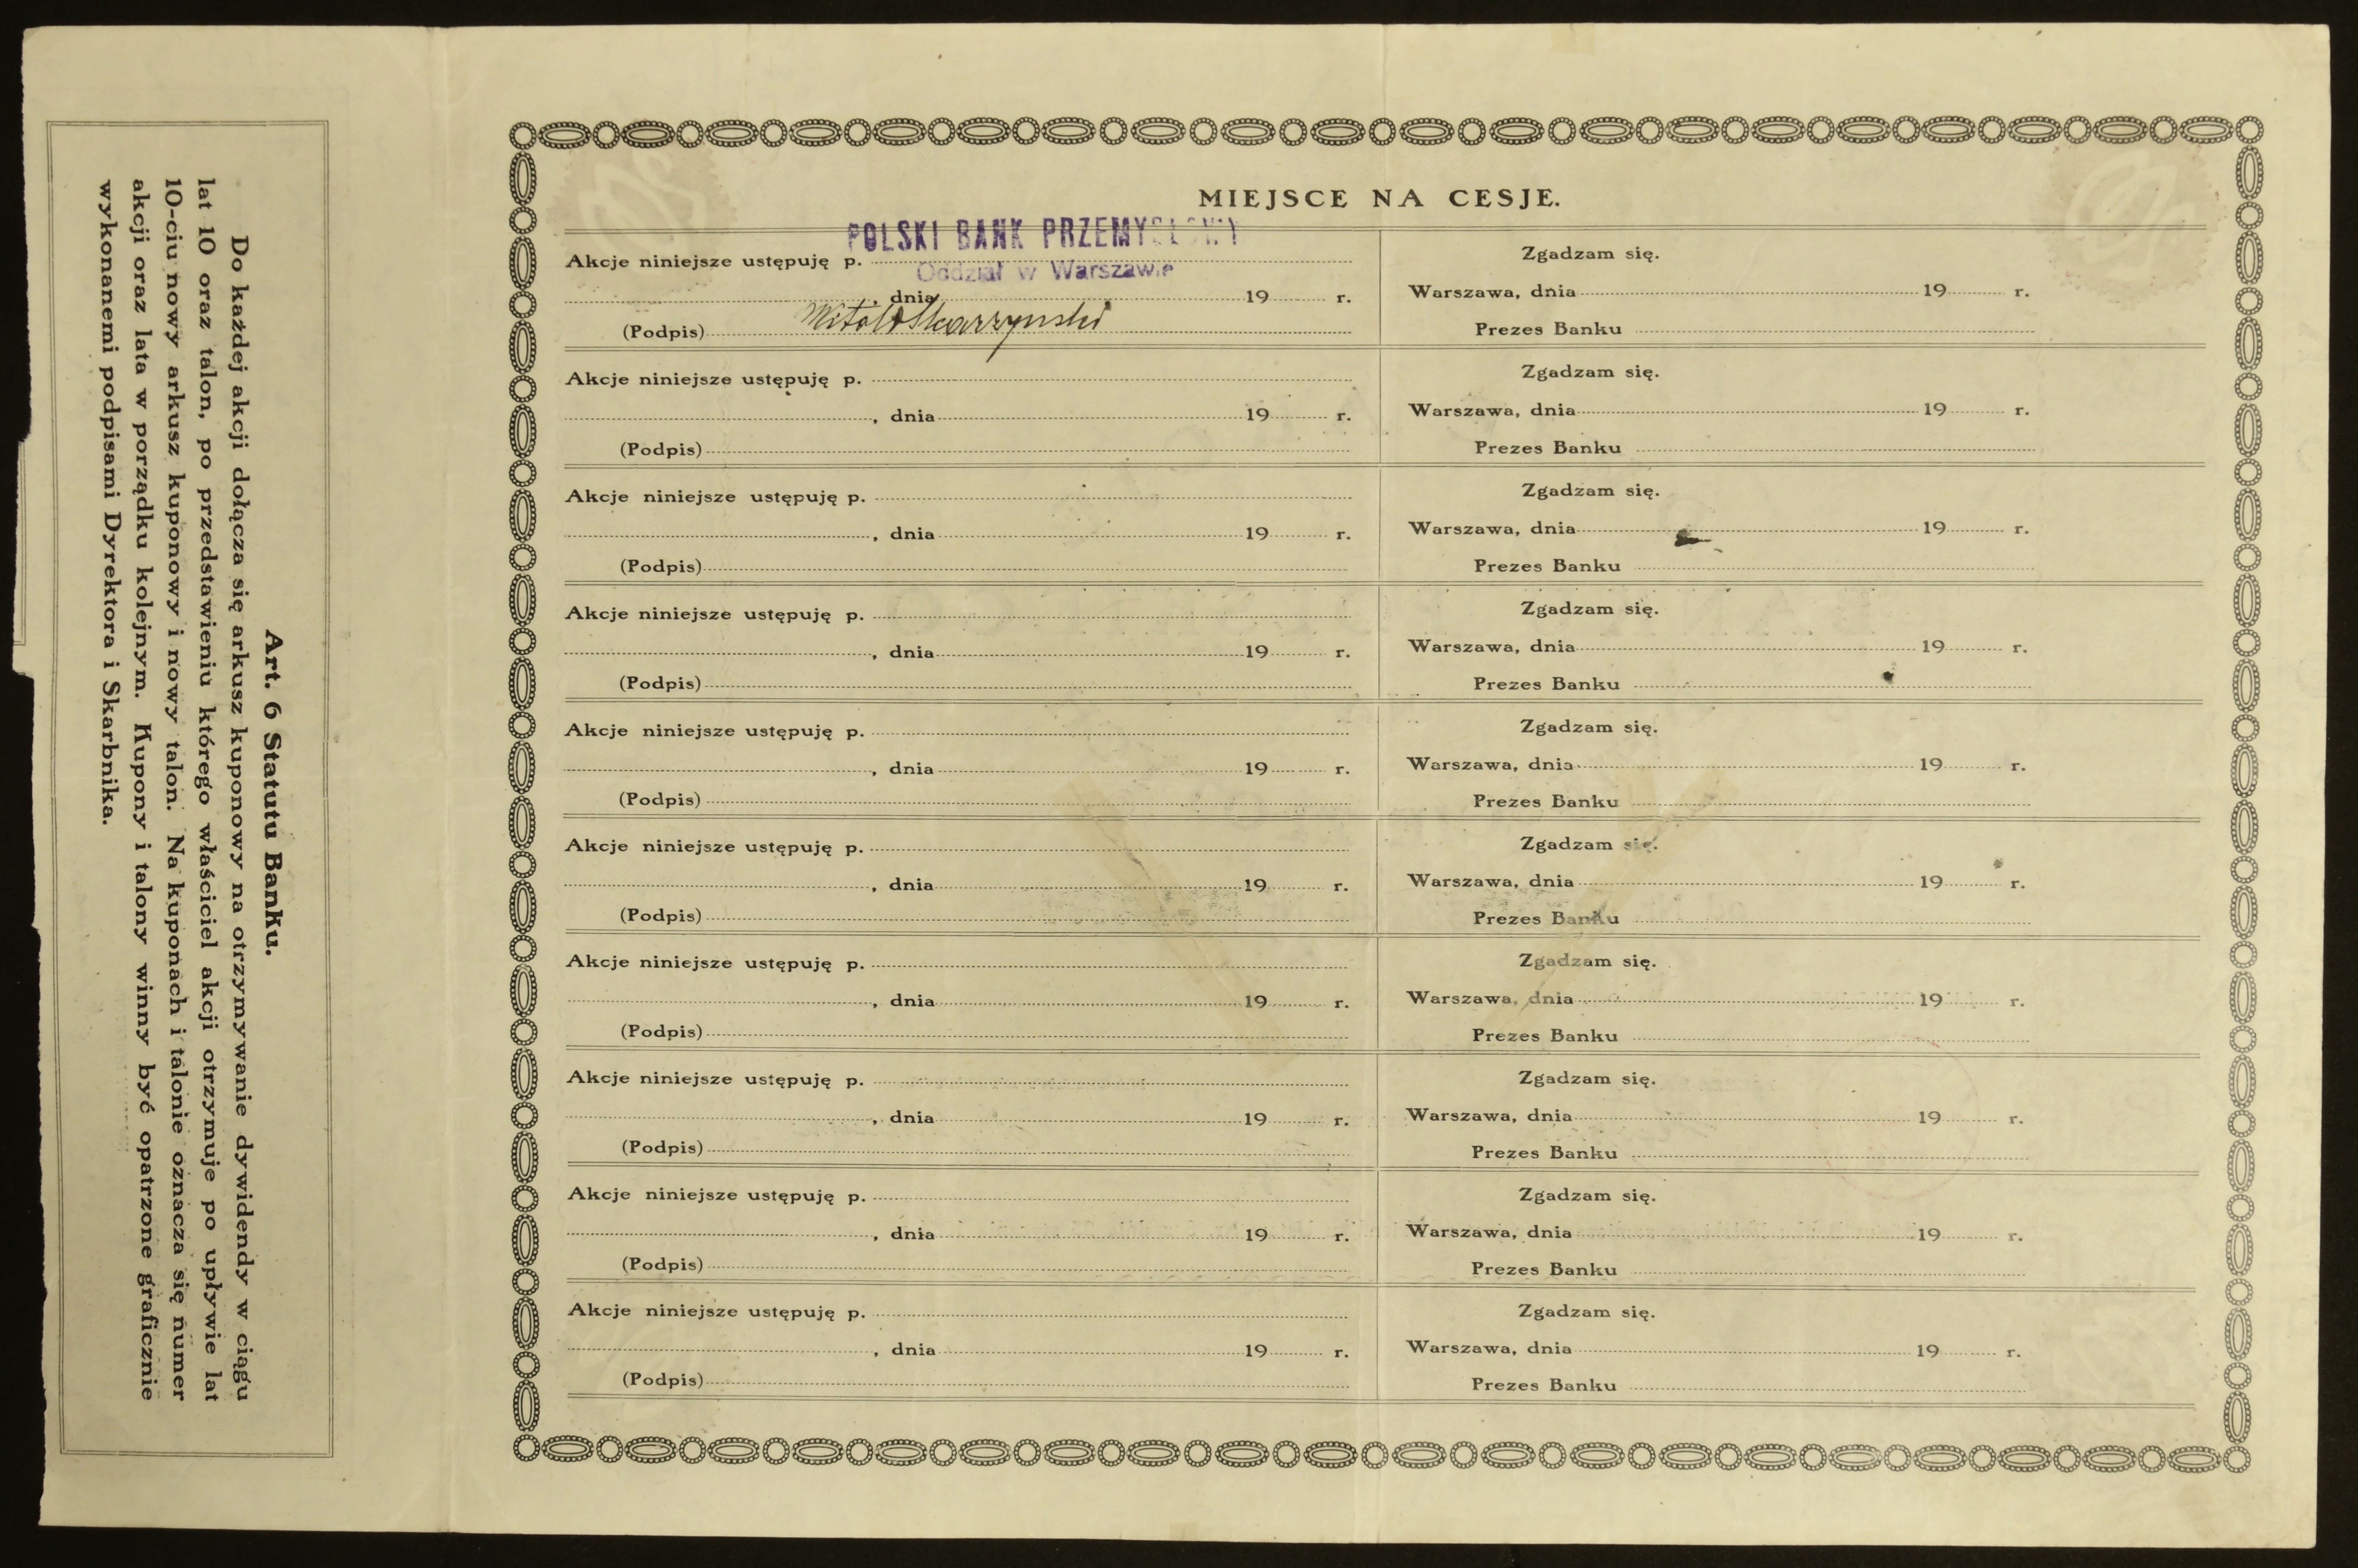 Art. 6 Statutu Banku.
Do każdej akcji dołącza się arkusz kuponowy na otrzymywanie dywidendy w ciągu
lat 10 oraz talon, po przedstawieniu którego właściciel akcji otrzymuje po upływie lat
10-ciu nowy arkusz kuponowy i nowy talon. Na kuponach i talonie oznacza się numer
akcji oraz lata w porządku kolejnym. Kupony i talony winny być opatrzone graficznie
wykonanemi podpisami Dyrektora i Skarbnika.
MIEJSCE NA CESJE.
POLSKI BANK PRZEMYSŁOWY
Akcje niniejsze ustępuję p.
Oddział w Warszawie
, dnia 19 r.
(Podpis) Witold Skarzynski
Zgadzam się.
Warszawa, dnia 19 r.
Prezes Banku
Akcje niniejsze ustępuję p.
, dnia 19 r.
(Podpis)
Zgadzam się.
Warszawa, dnia 19 r.
Prezes Banku
Akcje niniejsze ustępuję p.
, dnia 19 r.
(Podpis)
Zgadzam się.
Warszawa, dnia 19 r.
Prezes Banku
Akcje niniejsze ustępuję p.
, dnia 19 r.
(Podpis)
Zgadzam się.
Warszawa, dnia 19 r.
Prezes Banku
Akcje niniejsze ustępuję p.
, dnia 19 r.
(Podpis)
Zgadzam się.
Warszawa, dnia 19 r.
Prezes Banku
Akcje niniejsze ustępuję p.
, dnia 19 r.
(Podpis)
Zgadzam się.
Warszawa, dnia 19 r.
Prezes Banku
Akcje niniejsze ustępuję p.
, dnia 19 r.
(Podpis)
Zgadzam się.
Warszawa, dnia 19 r.
Prezes Banku
Akcje niniejsze ustępuję p.
, dnia 19 r.
(Podpis)
Zgadzam się.
Warszawa, dnia 19 r.
Prezes Banku
Akcje niniejsze ustępuję p.
, dnia 19 r.
(Podpis)
Zgadzam się.
Warszawa, dnia 19 r.
Prezes Banku
Akcje niniejsze ustępuję p.
, dnia 19 r.
(Podpis)
Zgadzam się.
Warszawa, dnia 19 r.
Prezes Banku